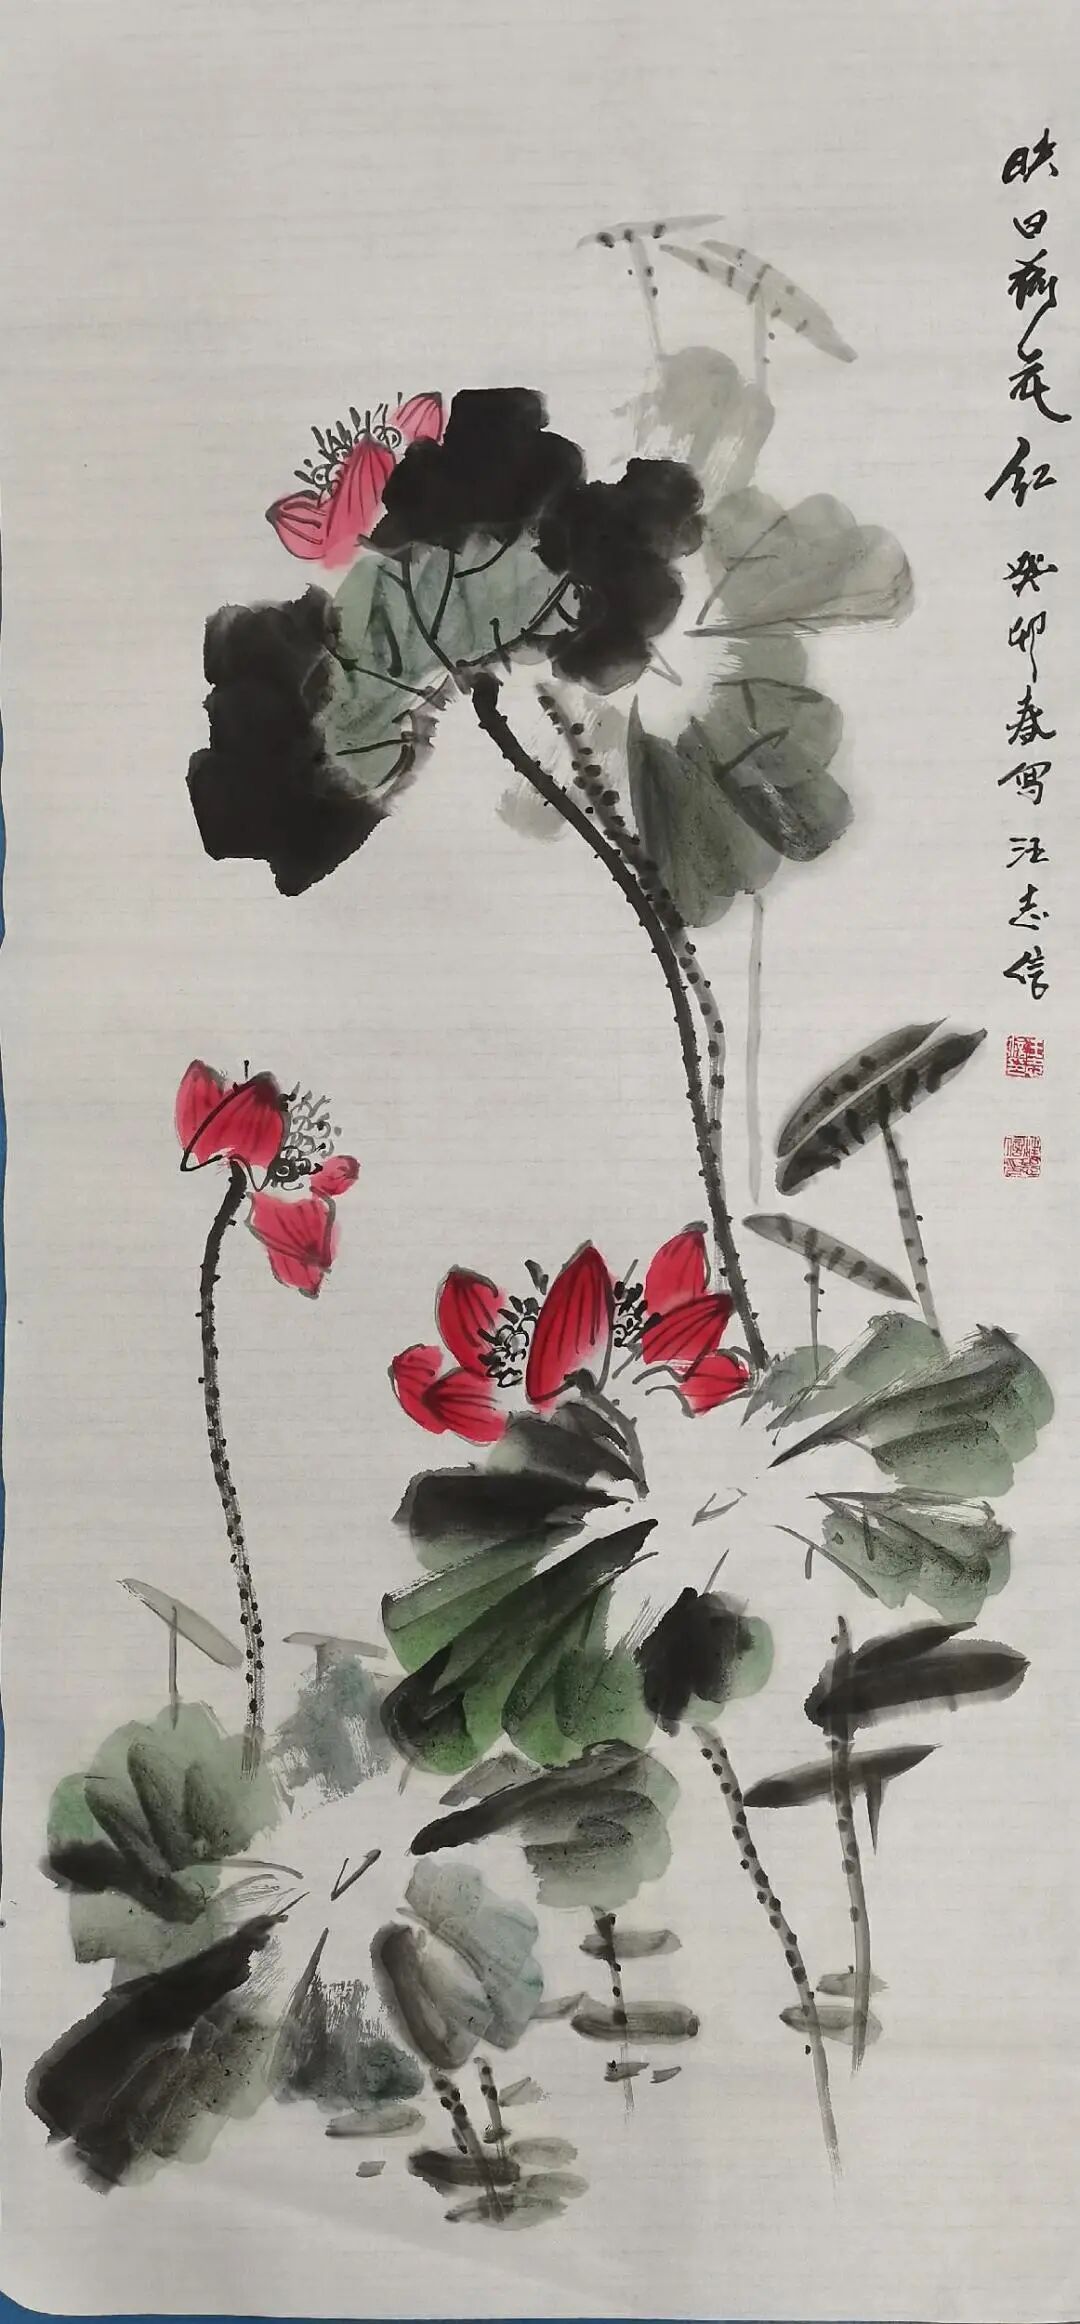 映日荷花红 癸卯春写 汪志信